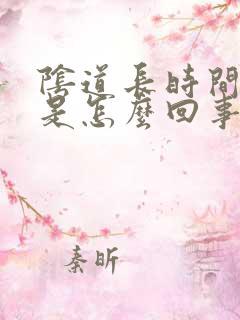 陰道長時間
是怎麼回事
秦昕